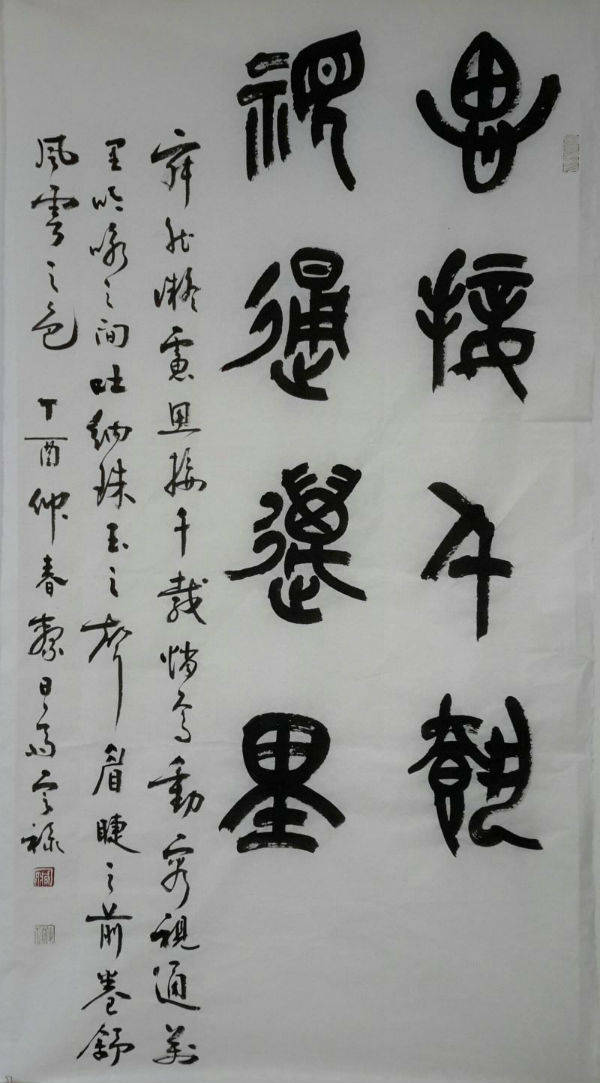 思接千載
視通萬里
寂然凝慮思接千載悄焉動容視通萬
里吟咏之間吐納珠玉之聲眉睫之前卷舒
風雲之色 丁酉仲春